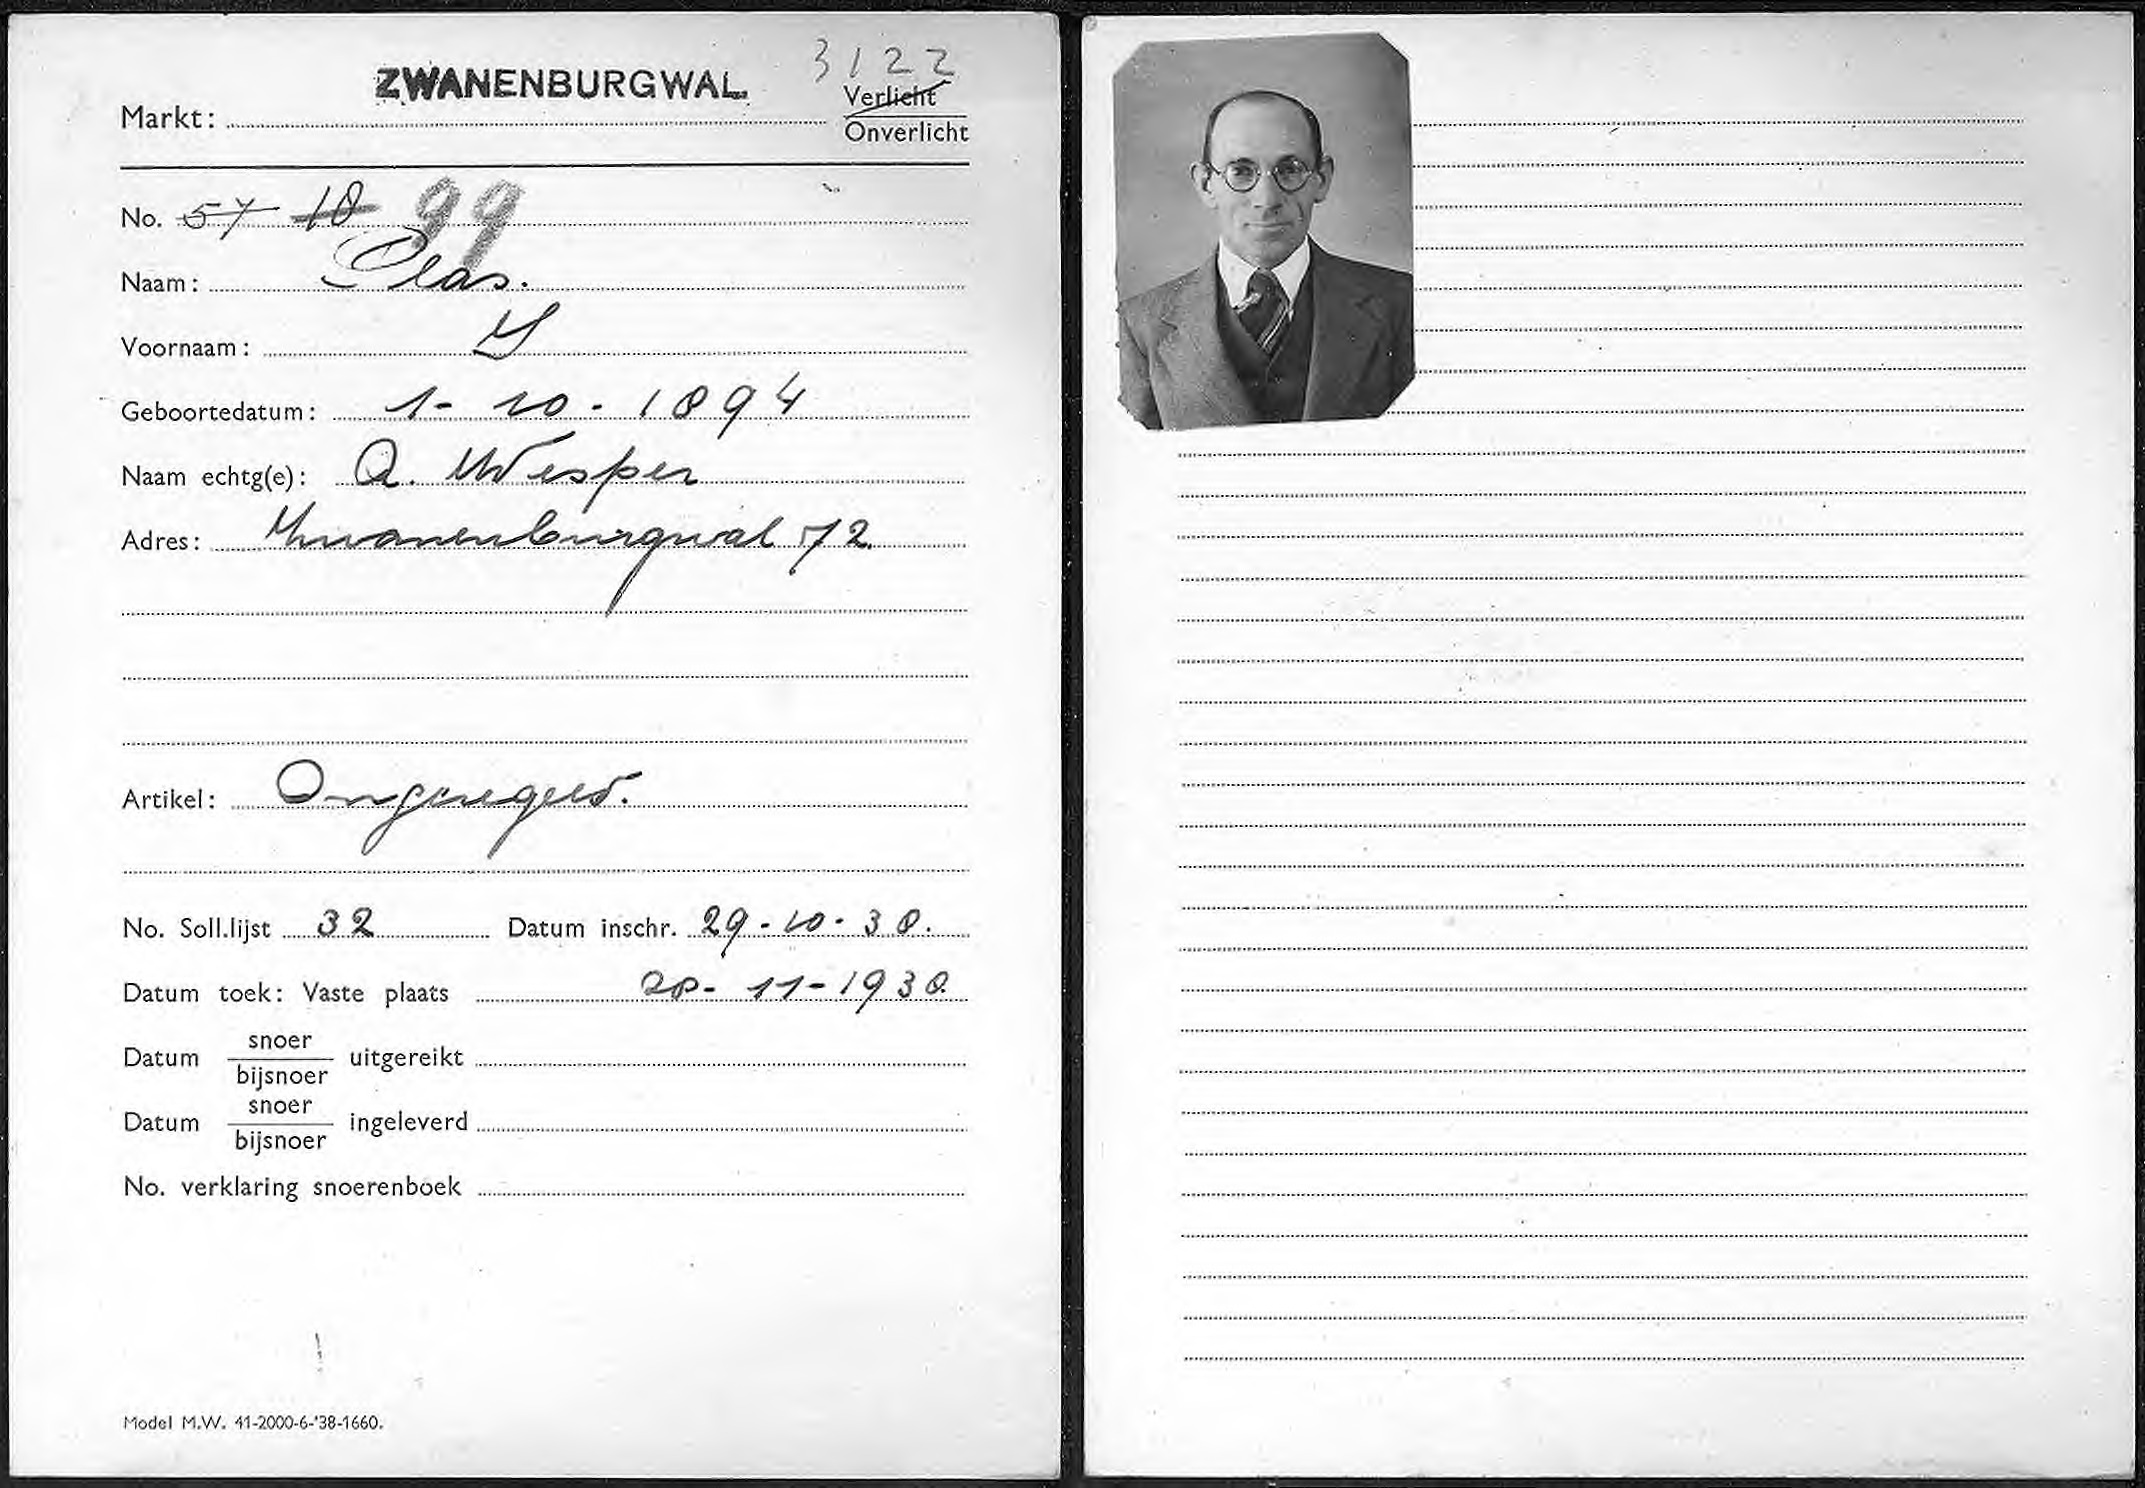 3122
ZWANENBURGWAL
Markt: Verlicht
Onverlicht
No. 57 18 99
Naam: Plas.
Voornaam: S
Geboortedatum: 1-10-1894
Naam echtg(e): A. Wesper
Adres: Zwanenburgwal 72
Artikel: Ongeregeld.
No. Soll.lijst 32 Datum inschr. 29-10-30.
Datum toek: Vaste plaats 20-11-1930
Datum snoer/bijsnoer uitgereikt
Datum snoer/bijsnoer ingeleverd
No. verklaring snoerenboek
Model M.W. 41-2000-6-'38-1660.